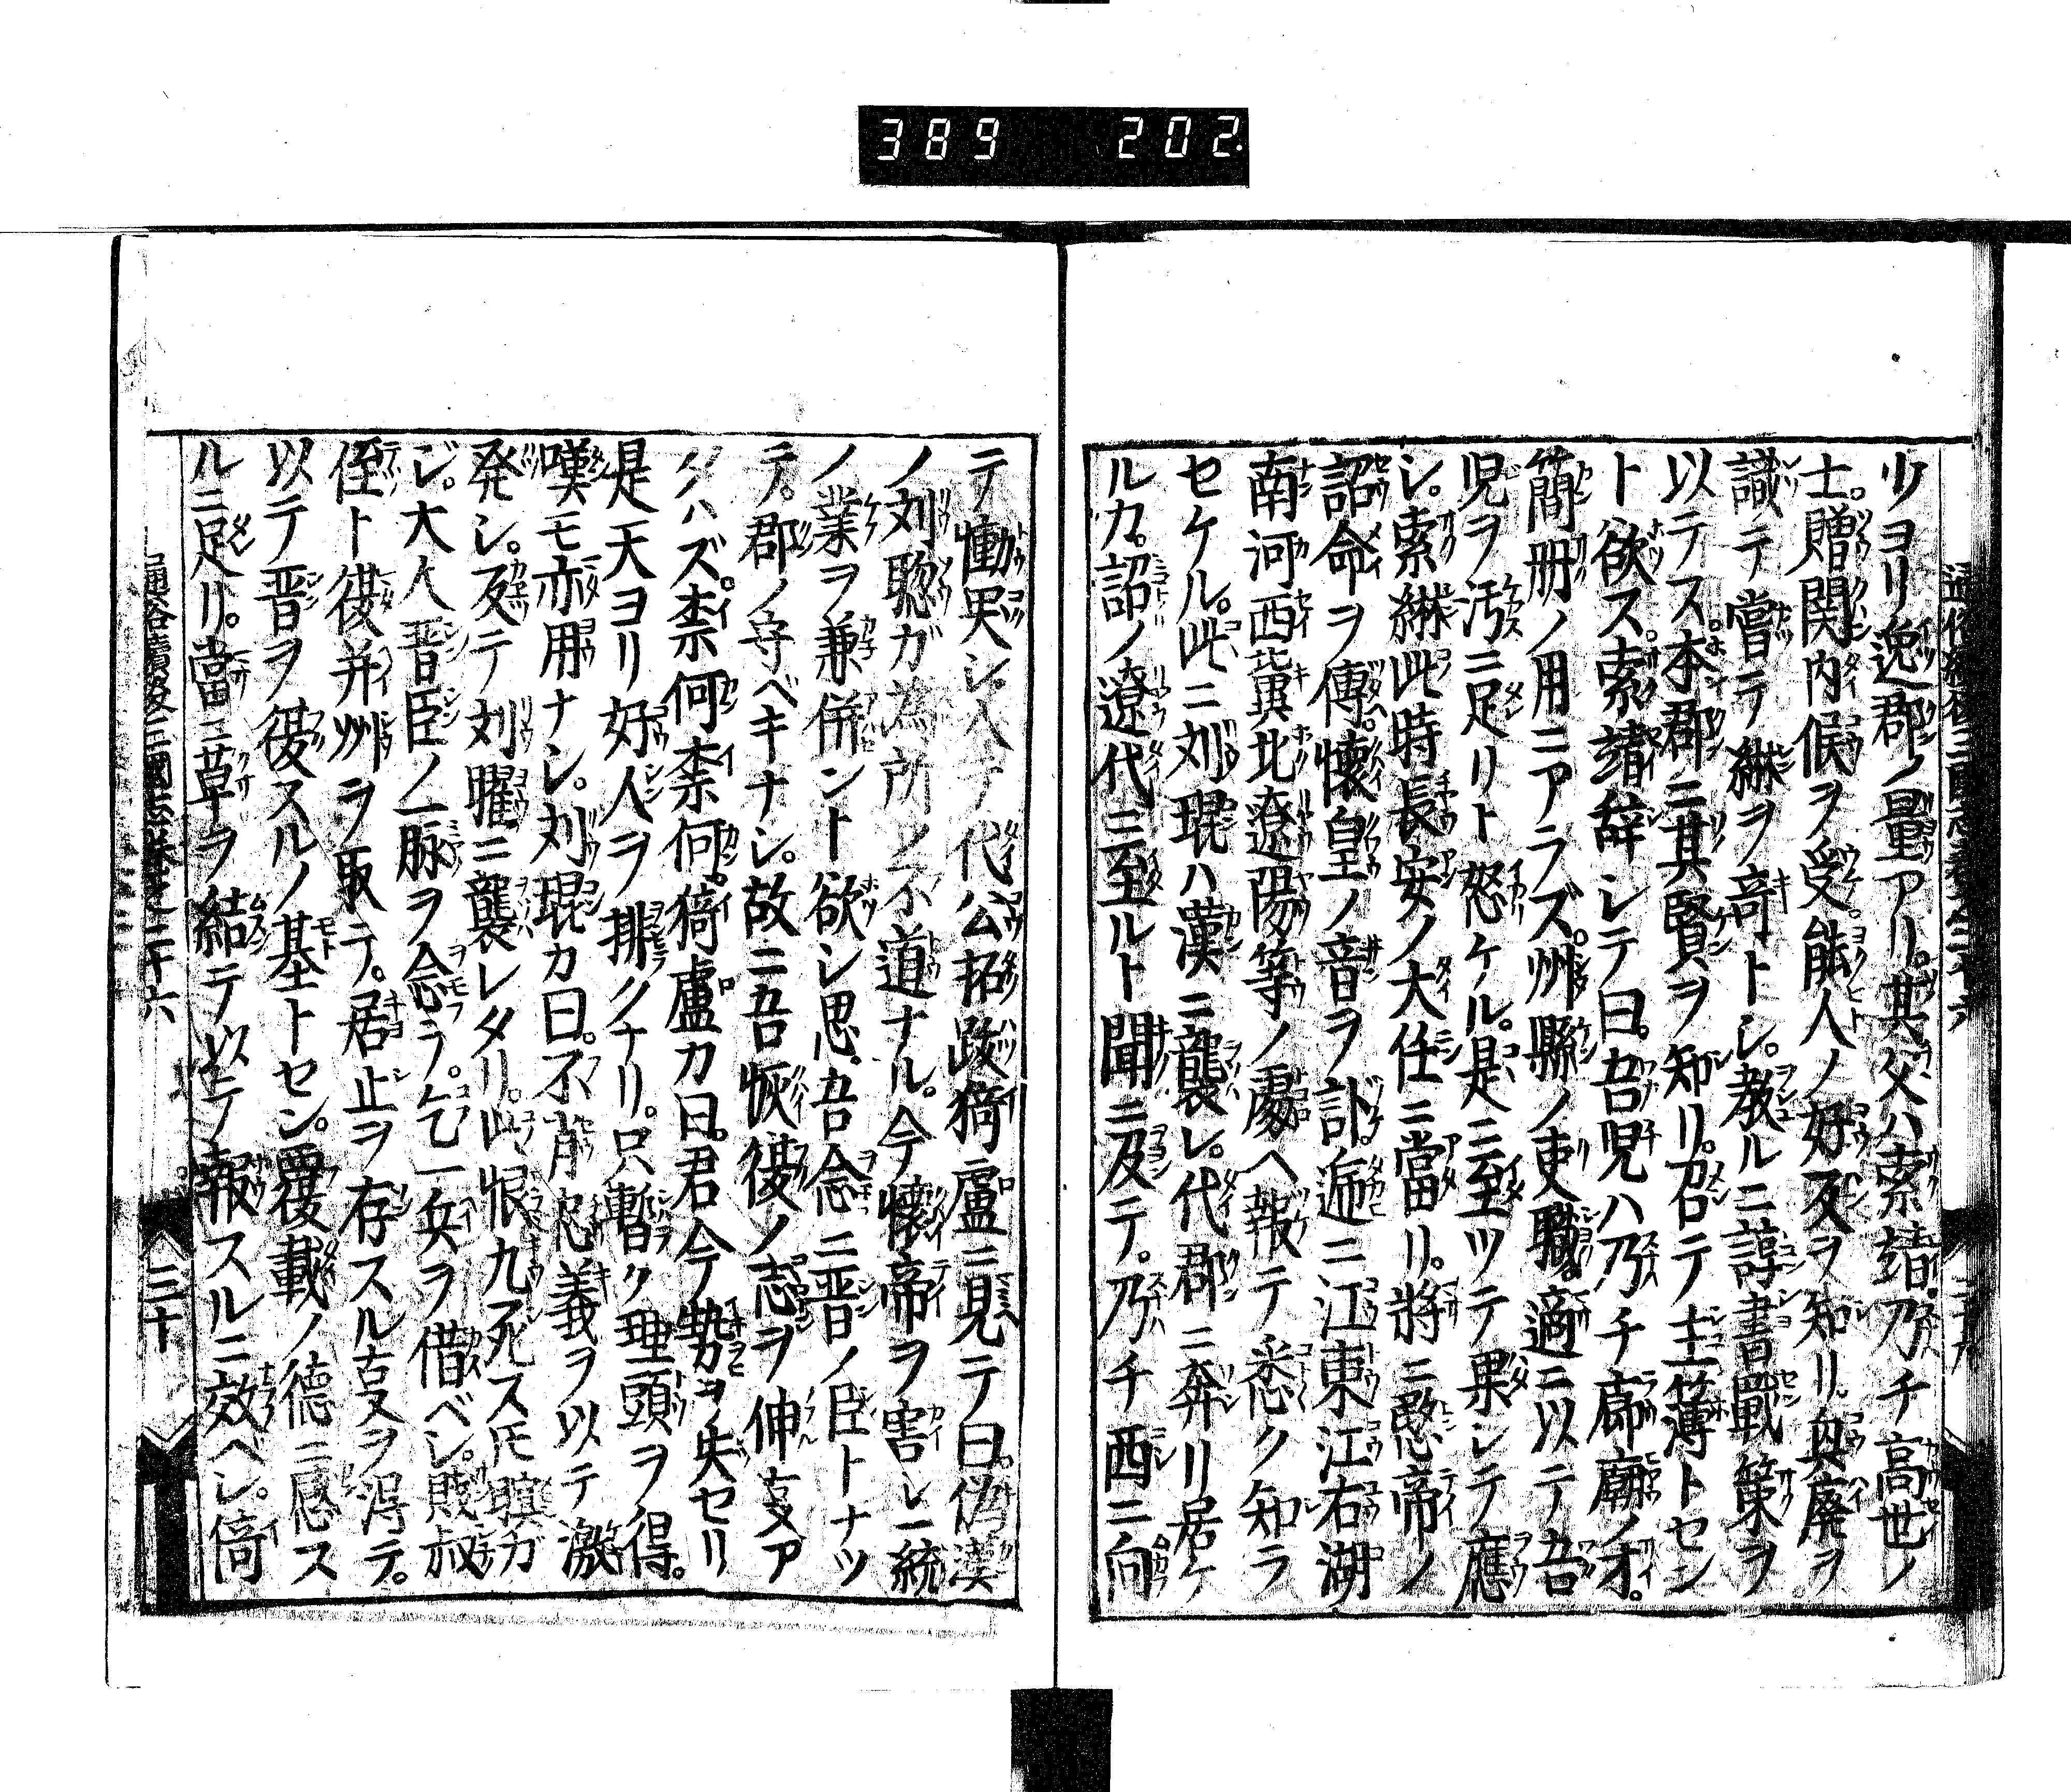 389 202.
少ヨリ逸郡ノ量アル。其父ハ索靖乃チ高世ノ
士。贈関内候ヲ受。能人ノ好反ヲ知リ。興廃ヲ
識テ嘗テ綝ヲ奇トシ。教ルニ諄書戰策ヲ
以テス。本郡ニ其賢ヲ知リ。召テ主簿トセン
ト欲ス。索靖辞シテ曰。吾児ハ乃チ廊廟ノ才。
簡冊ノ用ニアラズ。州縣ノ吏職。適ニ以テ吾
児ヲ汚ニ足リト怒ケル。是ニ至ツテ果シテ應
シ。索綝此時長安ノ大任ニ當リ。將ニ愍帝ノ
詔命ヲ傳。懐皇ノ音ヲ訃。遍ニ江東江右湖
南河西冀北遼陽等ノ處ヘ報テ悉ク知ラ
セケル。此ニ刘琨ハ漢ニ襲レ。代郡ニ奔リ居ケ
ルカ。詔ノ遼代ニ至ルト聞ニ及テ。乃チ西ニ向
テ慟哭シ入テ代公拓跋猗盧ニ見テ曰。偽漢
ノ刘聡ガ為所ノ不道ナル。今懐帝ヲ害シ一統
ノ業ヲ兼併ント欲シ思。吾念ニ晋ノ臣トナツ
テ。郡ノ守ベキナシ。故ニ吾恢復ノ志ヲ伸㕝ア
タハズ。柰何柰何。猗盧カ曰。君今勢ヲ失セリ
是天ヨリ好人ヲ排クナリ。只暫ク埋頭ヲ得。
嘆モ亦用ナシ。刘琨カ曰。不肖忠義ヲ以テ激
発シ。反テ刘曜ニ襲レタリ。此恨九死ス𪜈瞑ガ
ジ。大人晋臣ノ一脉ヲ念ラ。乞一兵ヲ借ベシ。賎叔
侄ト復并州ヲ取テ。居止ヲ存スル㕝ヲ得テ。
以テ晋ヲ復スルノ基トセン。覆載ノ德ニ感ス
ルニ足リ。當ニ草ヲ結テ以テ報スルニ效ベシ。倚
通俗續後三國志 二十六
三十